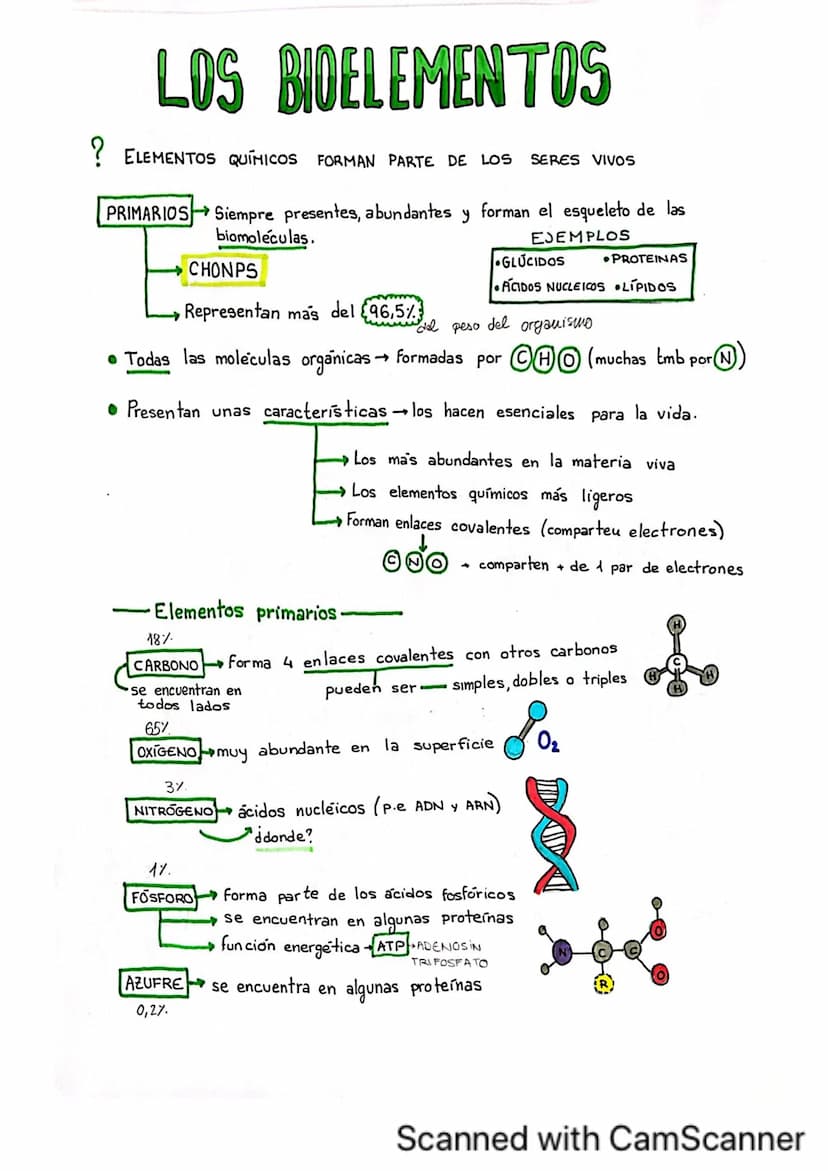 LOS BIOELEMENTOS
? ELEMENTOS QUÍMICOS FORMAN PARTE DE LOS SERES VIVOS
PRIMARIOS → Siempre presentes, abundantes y forman el esqueleto de las
biomoléculas.
EJEMPLOS
•GLÚCIDOS •PROTEINAS
•ÁCIDOS NUCLEICOS •LÍPIDOS
CHONPS
Representan más del 96,5% del peso del organismo
• Todas las moléculas orgánicas → formadas por C H O (muchas tmb por N)
• Presentan unas características → los hacen esenciales para la vida.
→ Los más abundantes en la materia viva
→ Los elementos químicos más ligeros
→ Forman enlaces covalentes (comparteu electrones)
C N O → comparten + de 1 par de electrones
Elementos primarios
18%
CARBONO → Forma 4 enlaces covalentes con otros carbonos
se encuentran en
todos lados
pueden ser — simples, dobles o triples
H
C
H H
H
65%
OXÍGENO → muy abundante en la superficie
O₂
3%
NITRÓGENO → ácidos nucléicos (p.e ADN y ARN)
¿donde?
1%.
FÓSFORO → Forma parte de los ácidos fosfóricos
→ se encuentran en algunas proteínas
→ función energética → ATP → ADENOSÍN
TRIFOSFATO
AZUFRE → se encuentra en algunas proteínas
0,2%.
O
N C C
R O
Scanned with CamScanner